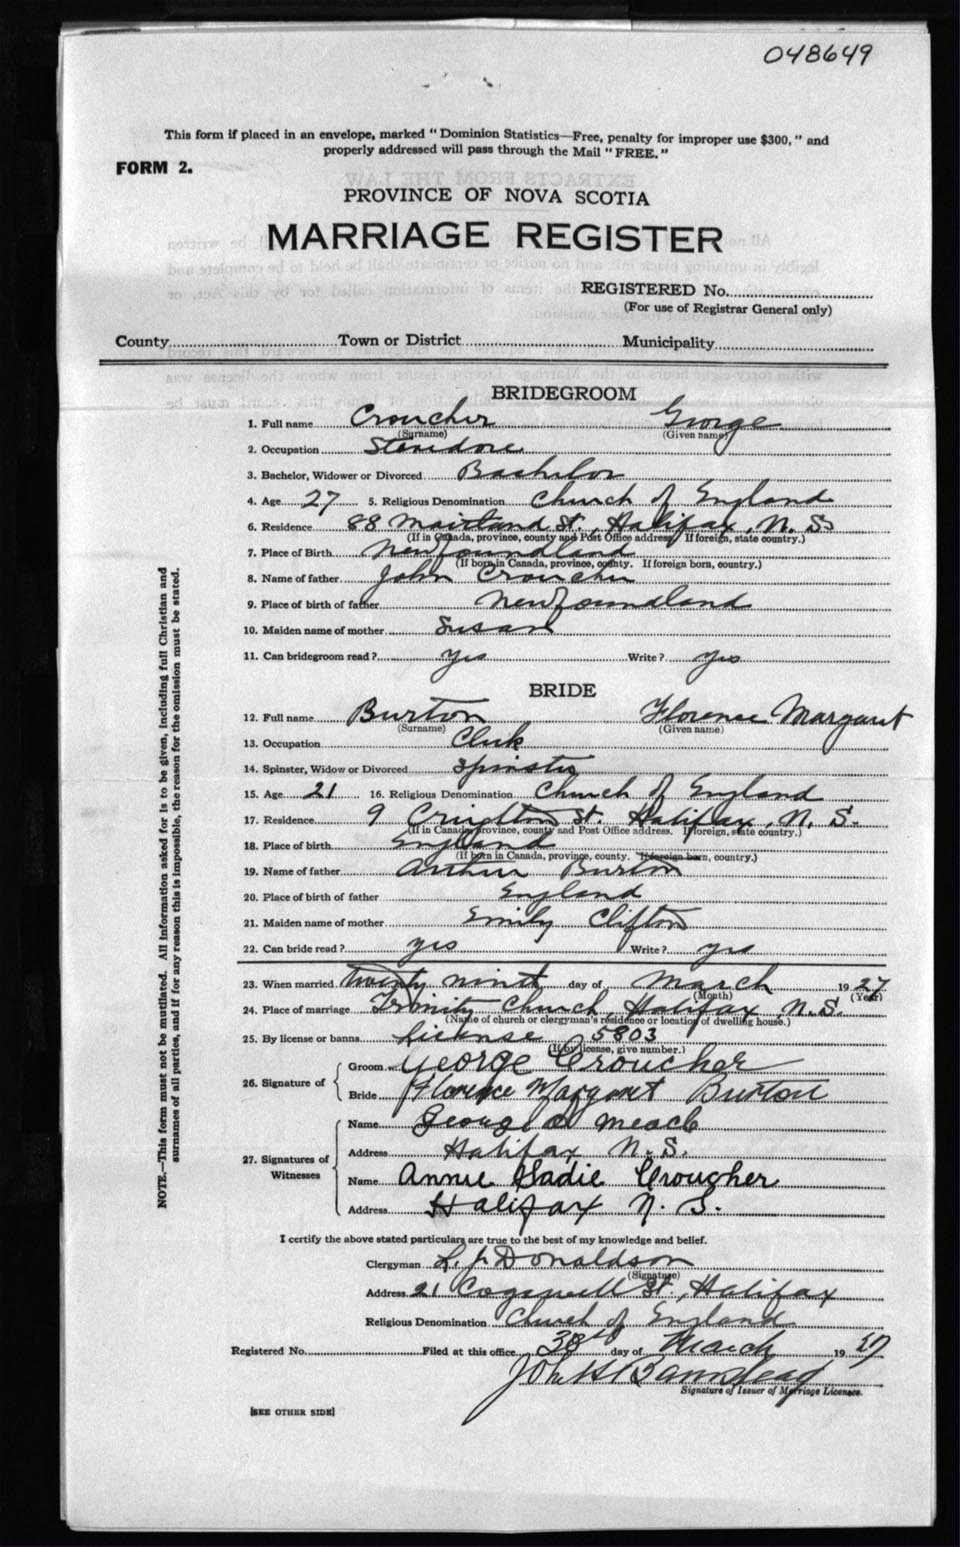 048649
This form if placed in an envelope, marked "Dominion Statistics—Free, penalty for improper use $300," and
properly addressed will pass through the Mail "FREE."
FORM 2.
PROVINCE OF NOVA SCOTIA
MARRIAGE REGISTER
REGISTERED No.
(For use of Registrar General only)
County Town or District Municipality
BRIDEGROOM
1. Full name Croucher George
(Surname) (Given name)
2. Occupation Stevedore
3. Bachelor, Widower or Divorced Bachelor
4. Age 27 5. Religious Denomination Church of England
6. Residence 88 Maitland St., Halifax, N.S.
(If in Canada, province, county and Post Office address. If foreign, state country.)
7. Place of Birth Newfoundland
(If born in Canada, province, county. If foreign born, country.)
8. Name of father John Croucher
9. Place of birth of father Newfoundland
10. Maiden name of mother Susan
11. Can bridegroom read? yes Write? yes
BRIDE
12. Full name Burton Florence Margaret
(Surname) (Given name)
13. Occupation Clerk
14. Spinster, Widow or Divorced Spinster
15. Age 21 16. Religious Denomination Church of England
17. Residence 9 St. Halifax, N.S.
(If in Canada, province, county and Post Office address. If foreign, state country.)
18. Place of birth England
(If born in Canada, province, county. If foreign born, country.)
19. Name of father Arthur Burton
20. Place of birth of father England
21. Maiden name of mother Emily Clifton
22. Can bride read? yes Write? yes
23. When married twenty ninth day of March 1927
(Month) (Year)
24. Place of marriage Trinity Church, Halifax N.S.
(Name of church or clergyman's residence or location of dwelling house.)
25. By license or banns License 5803
(If by license, give number.)
26. Signature of Groom George Croucher
Bride Florence Margaret Burton
27. Signatures of Witnesses Name George
Address Halifax N.S.
Name Annie Sadie Croucher
Address Halifax N.S.
I certify the above stated particulars are true to the best of my knowledge and belief.
Clergyman L. J. Donaldson
(Signature)
Address 21 Cogswell St., Halifax
Religious Denomination Church of England
Registered No. Filed at this office 30th day of March 1927
John H Barnstead
Signature of Issuer of Marriage Licenses.
[SEE OTHER SIDE]
NOTE.—This form must not be mutilated. All information asked for is to be given, including full Christian and
surnames of all parties, and if for any reason this is impossible, the reason for the omission must be stated.